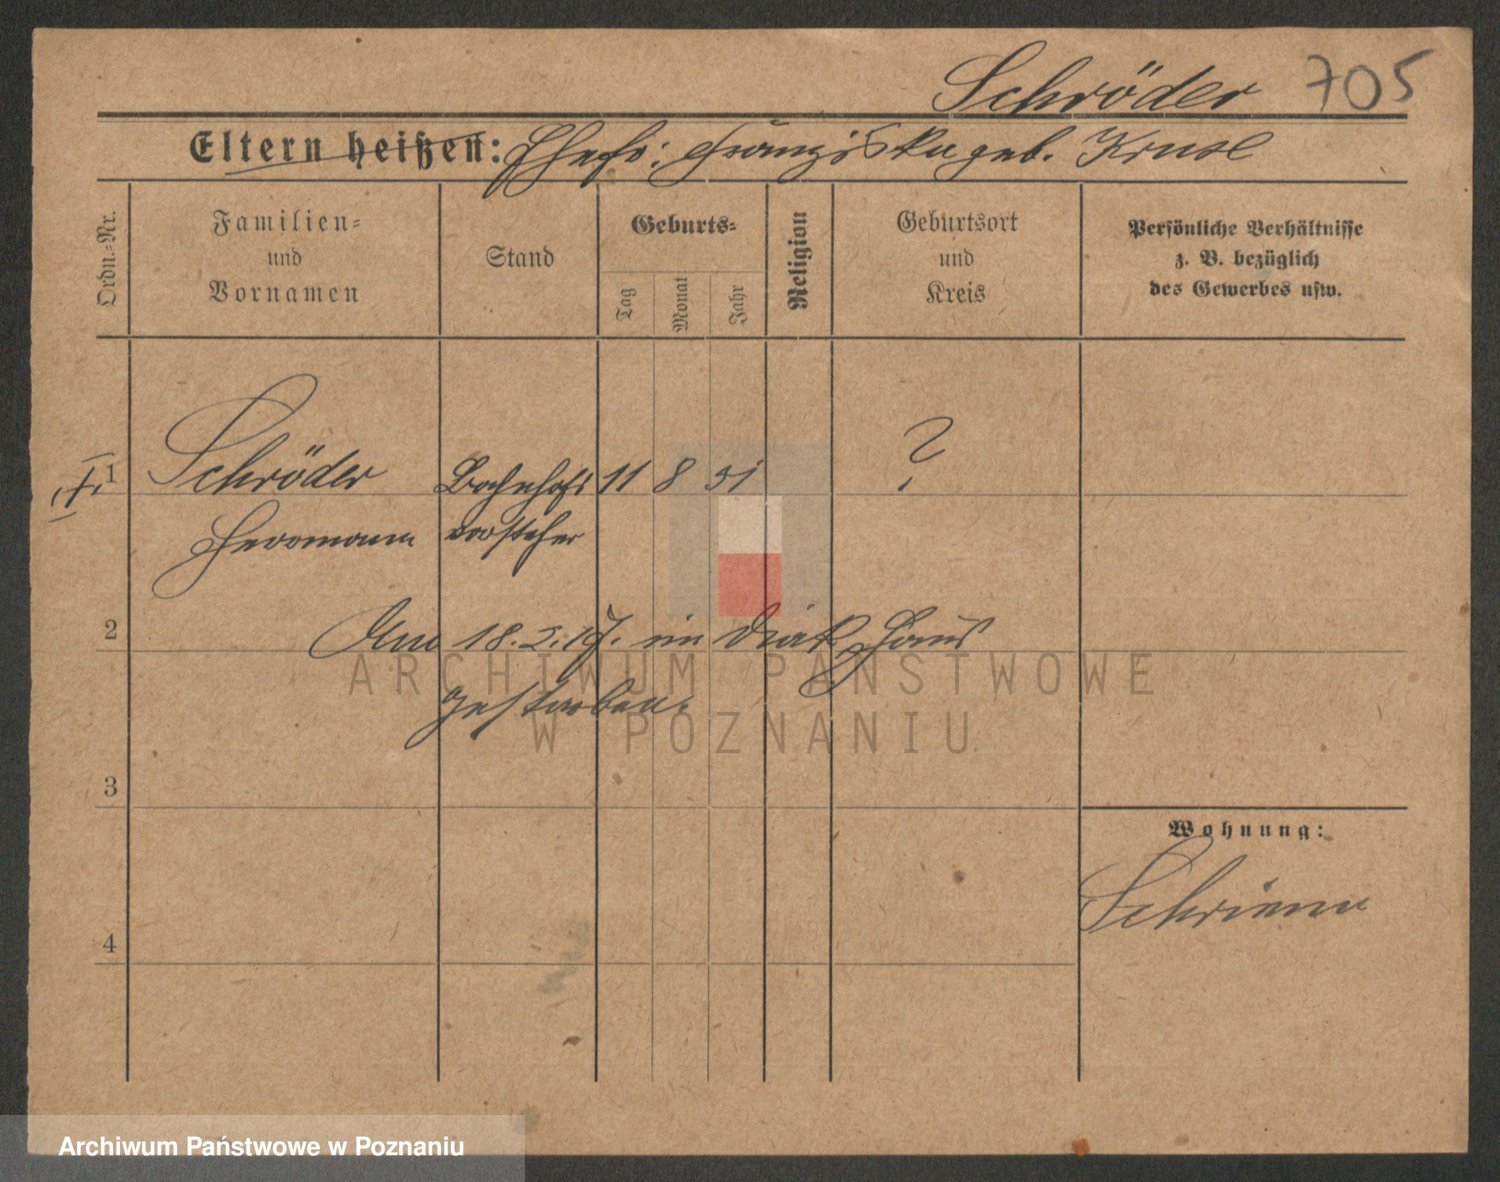 Schröder 705
Eltern heißen: Ehefr: Franziska geb. Kruse
Ordn.-Nr.
Familien-
und
Vornamen
Stand
Geburts-
Tag
Monat
Jahr
Religion
Geburtsort
und
Kreis
Persönliche Verhältnisse
z. B. bezüglich
des Gewerbes usw.
1 Schröder Bahnhofs 11 8 51 ?
Hermann vorsteher
2 Am 18.2.17. im Diak Haus
gestorben.
3
4
Wohnung:
Schrimm
ARCHIWUM PAŃSTWOWE
W POZNANIU
Archiwum Państwowe w Poznaniu